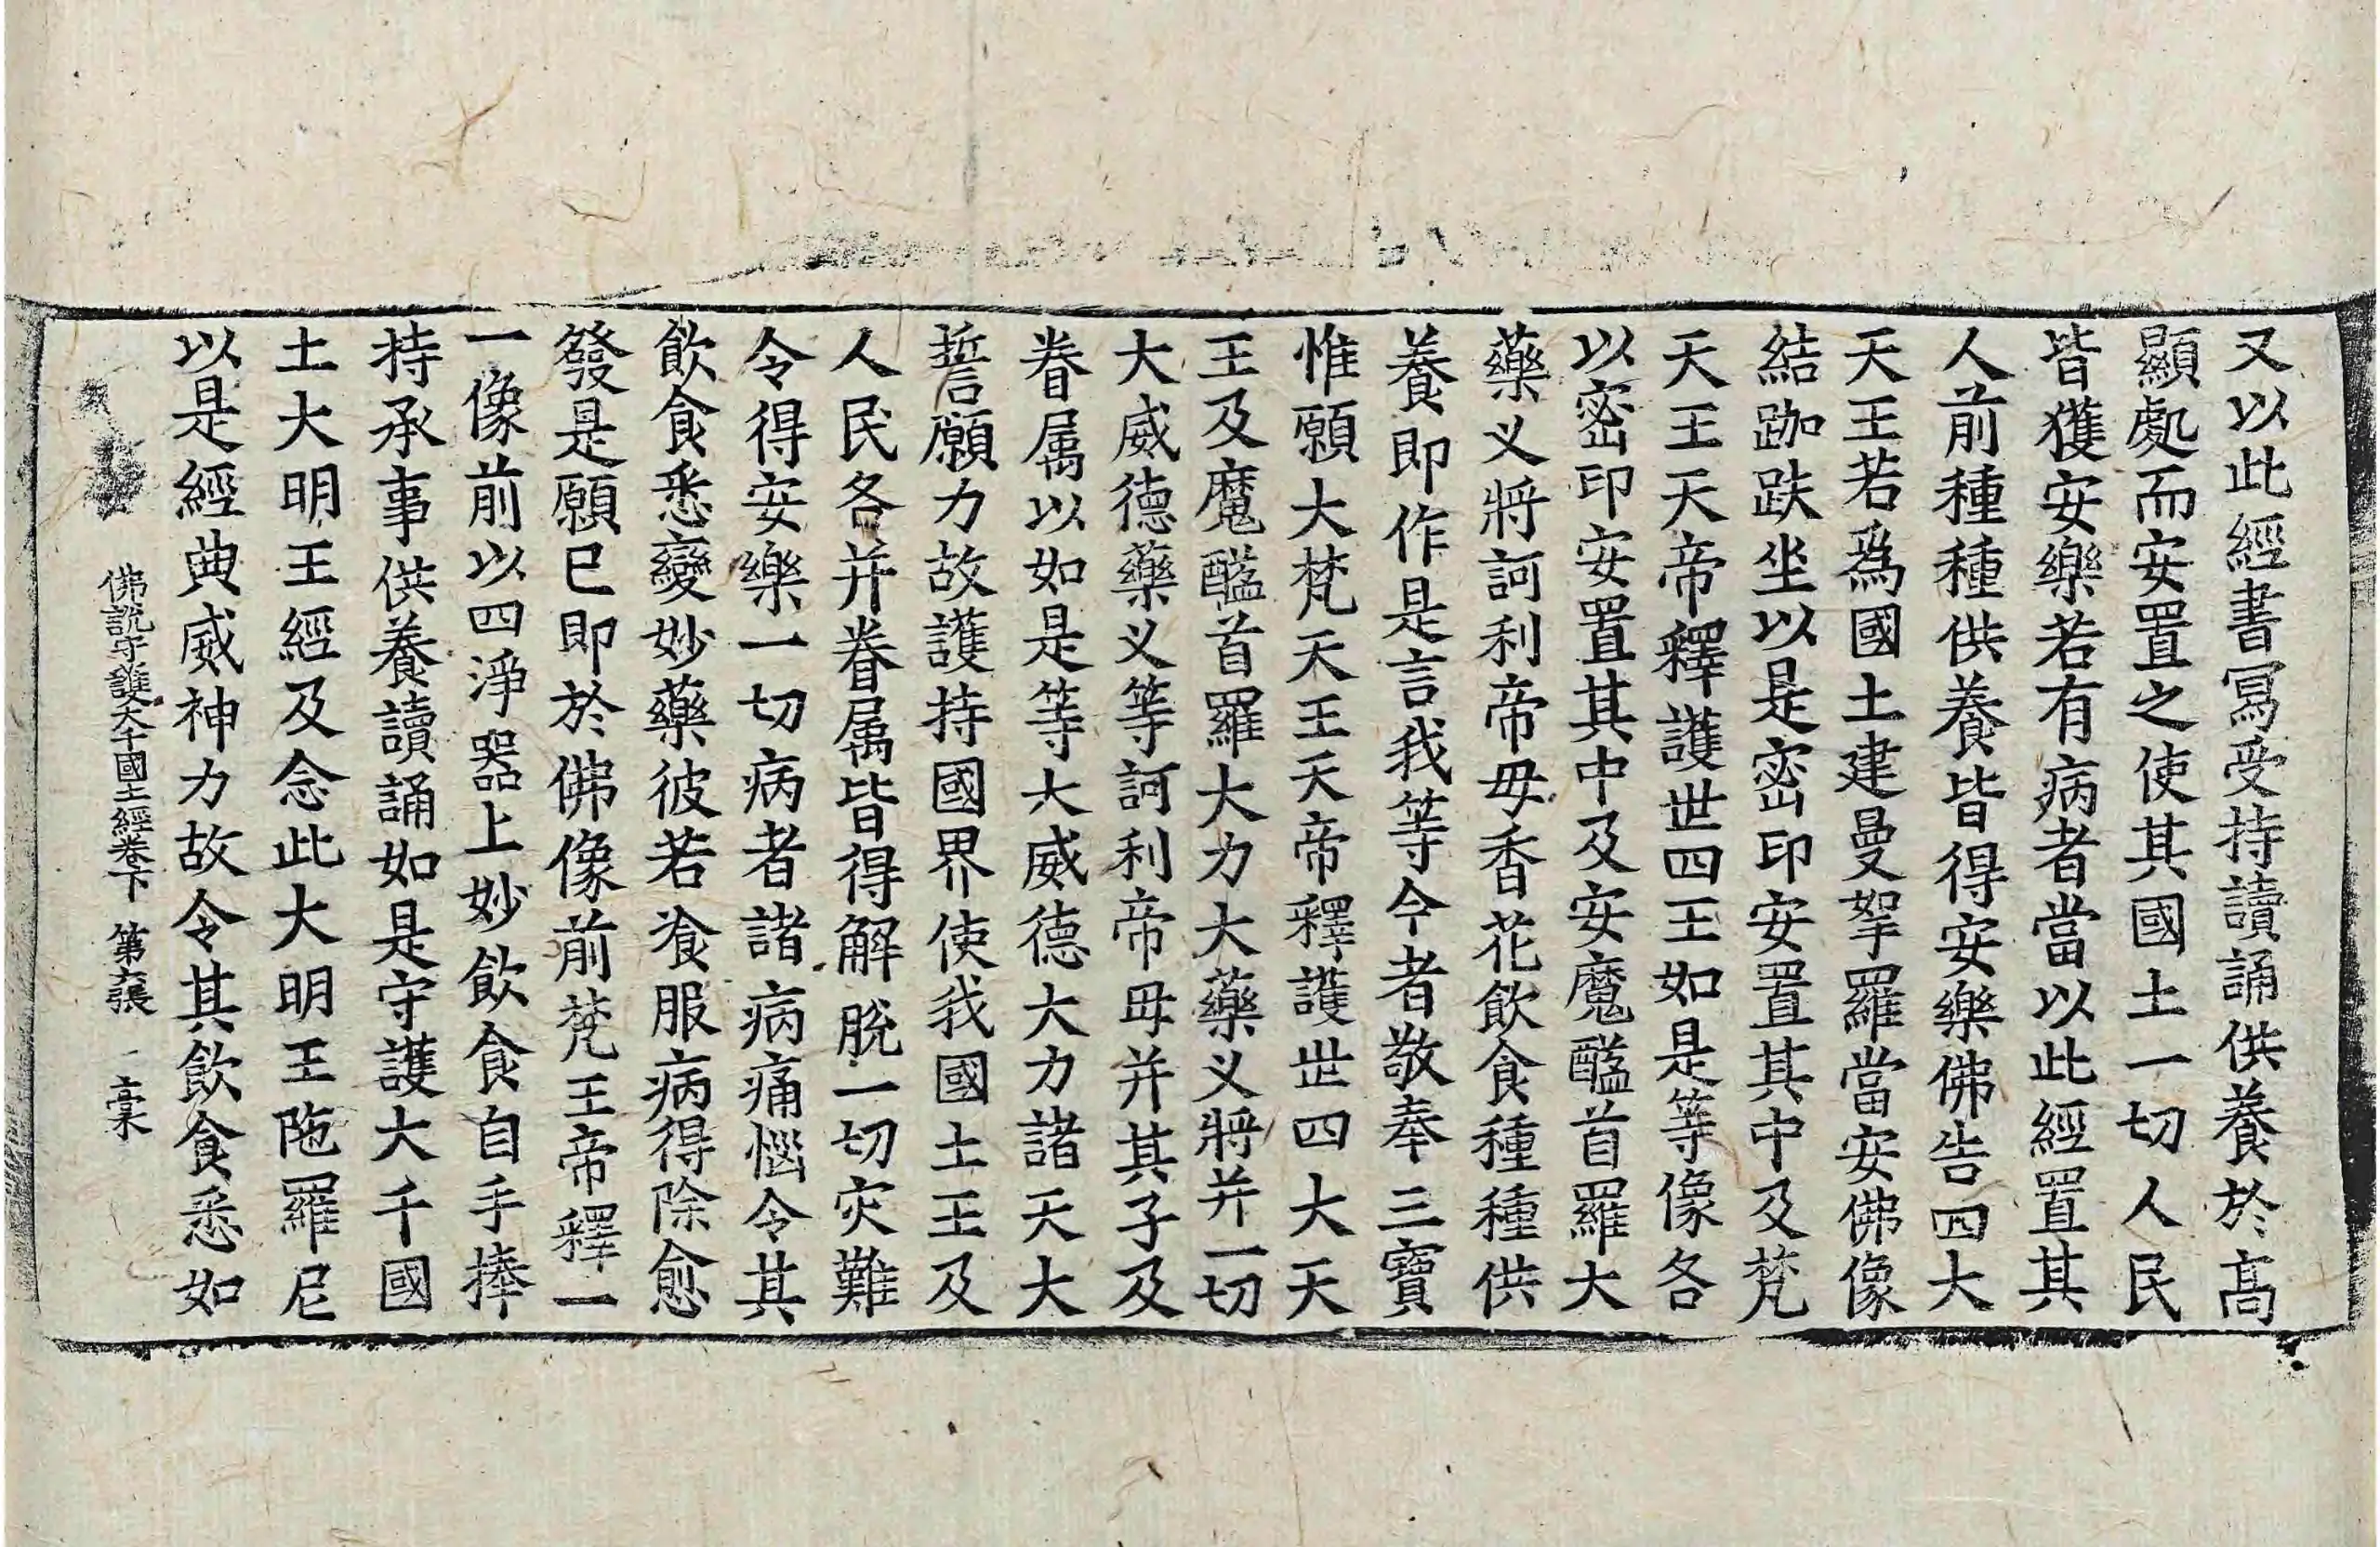 又以此經書寫受持讀誦供養於高
顯處而安置之使其國土一切人民
皆獲安樂若有病者當以此經置其
人前種種供養皆得安樂佛告四大
天王若爲國土建曼拏羅當安佛像
結跏趺坐以是密印安置其中及梵
天王天帝釋護世四王如是等像各
以密印安置其中及安魔醯首羅大
藥义將訶利帝母香花飲食種種供
養即作是言我等今者敬奉三寶
惟願大梵天王天帝釋護世四大天
王及魔醯首羅大力大藥义將并一切
大威德藥义等訶利帝母并其子及
眷属以如是等大威德大力諸天大
誓願力故護持國界使我國土王及
人民各并眷属皆得解脫一切灾難
令得安樂一切病者諸病痛惱令其
飲食悉變妙藥彼若飡服病得除愈
發是願已即於佛像前梵王帝釋一
一像前以四淨器上妙飲食自手捧
持承事供養讀誦如是守護大千國
土大明王經及念此大明王陁羅尼
以是經典威神力故令其飲食悉如
佛說守護大千國土經卷下 第六張 槖